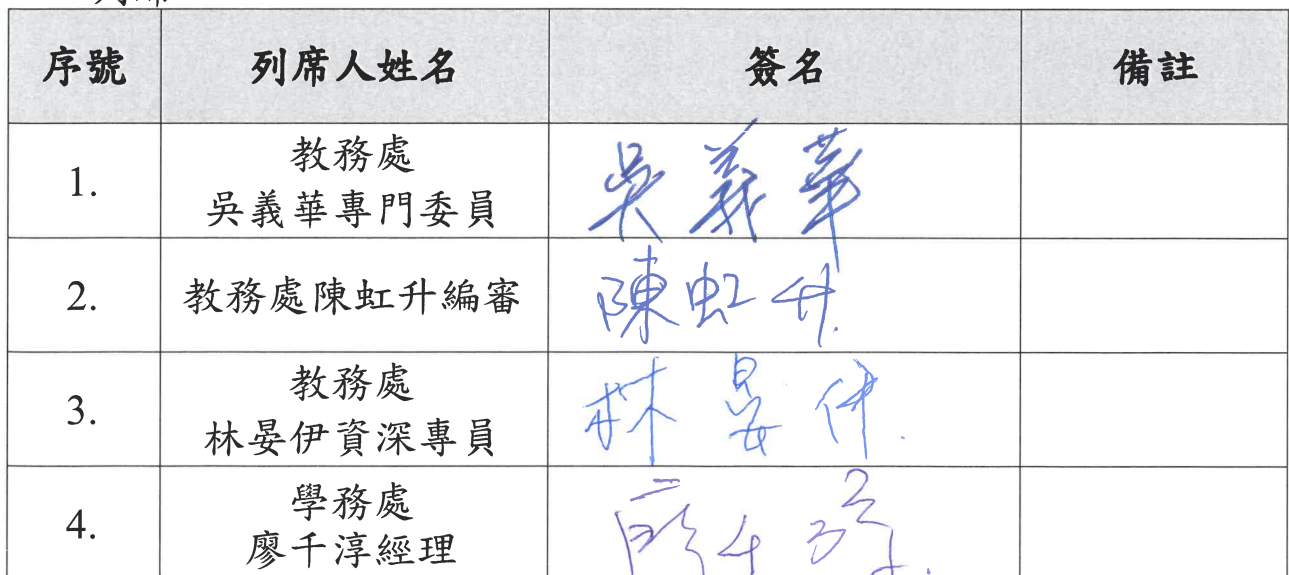 序號 列席人姓名 簽名 備註
1. 教務處
吳義華專門委員 吳義華
2. 教務處陳虹升編審 陳虹升
3. 教務處
林晏伊資深專員 林晏伊
4. 學務處
廖千淳經理 廖千淳